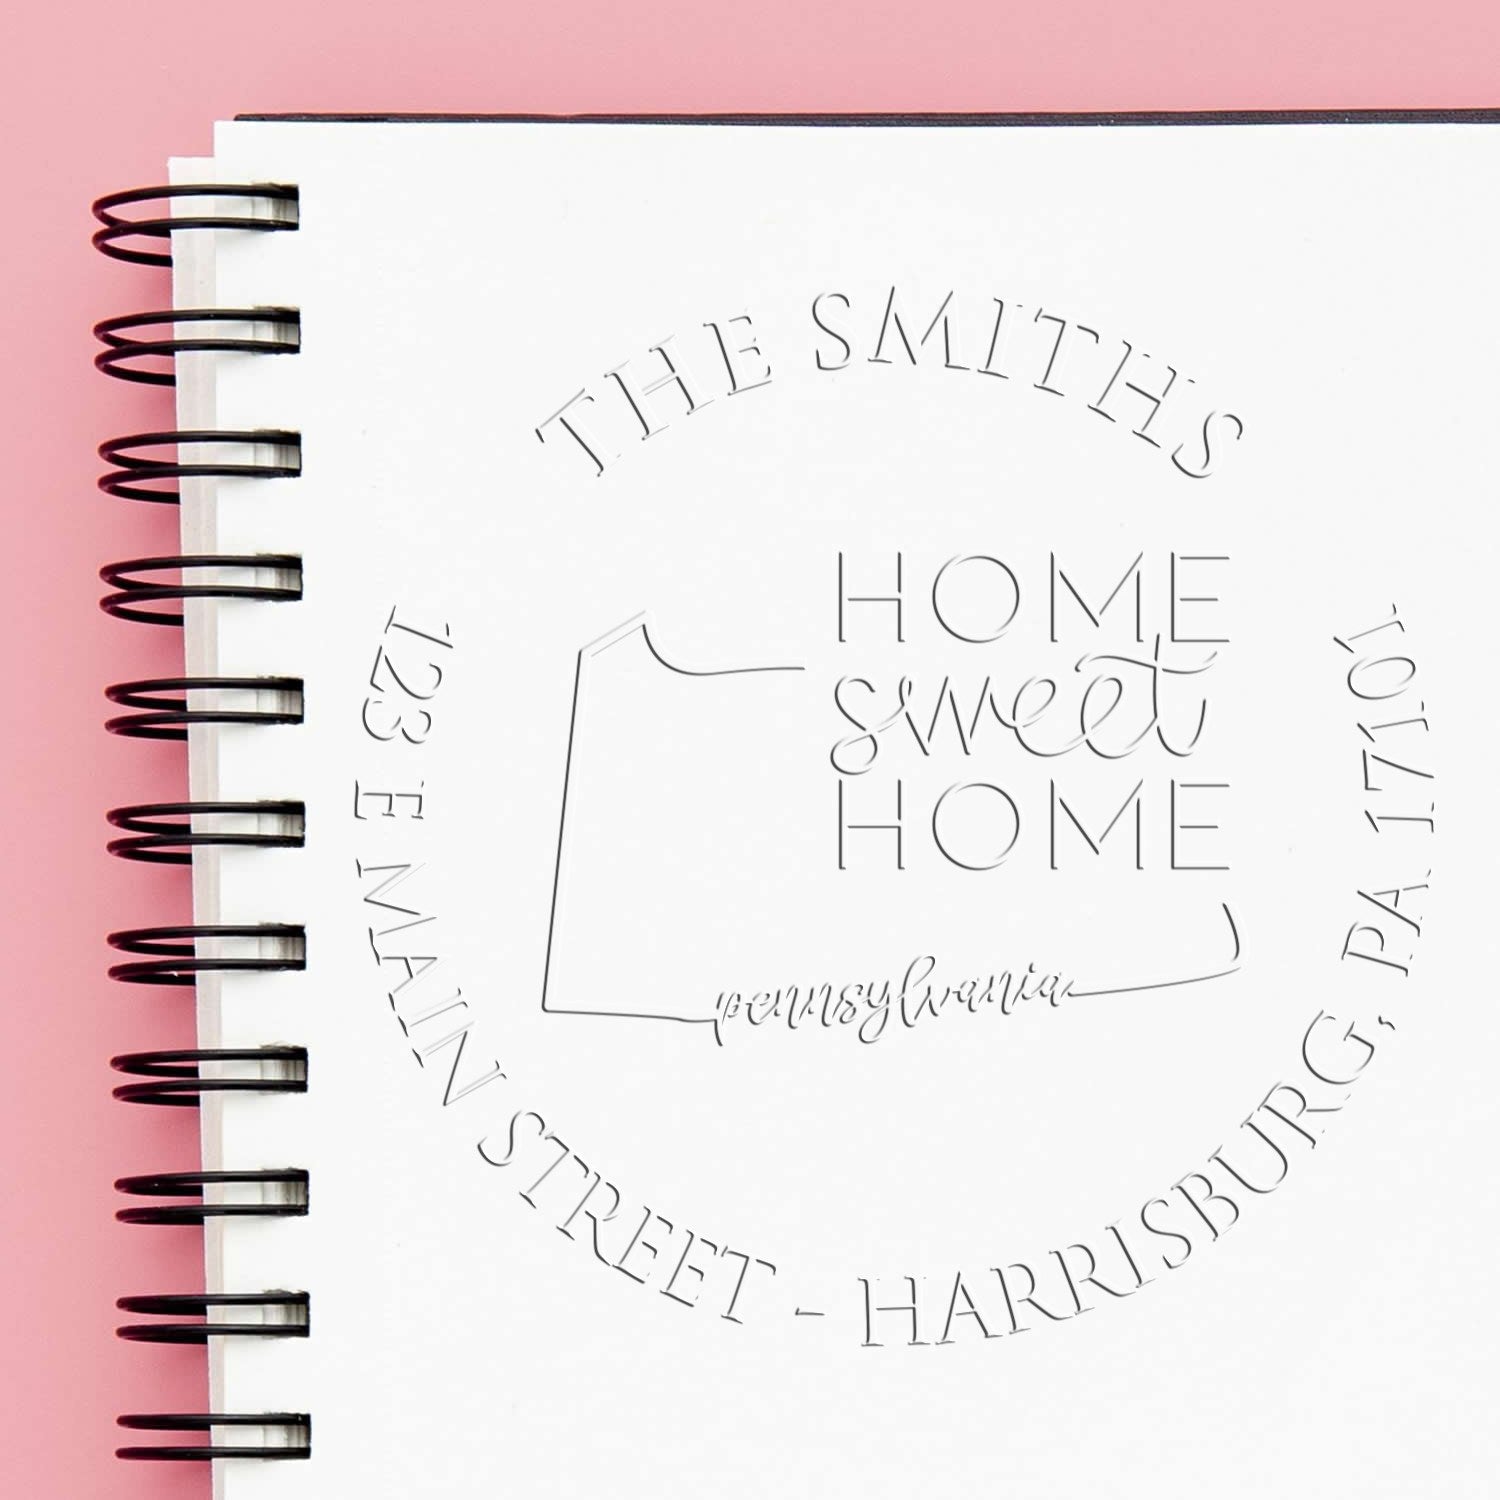 THE SMITHS
HOME
sweet
HOME
pennsylvania
123 E MAIN STREET - HARRISBURG, PA 17101